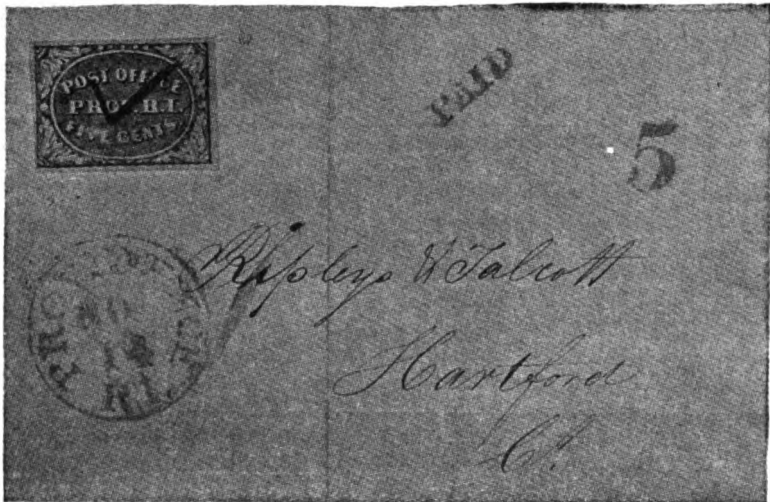 POST OFFICE
PROV. R.I.
FIVE CENTS
PAID
5
Ripleys & Talcott
Hartford
Ct.